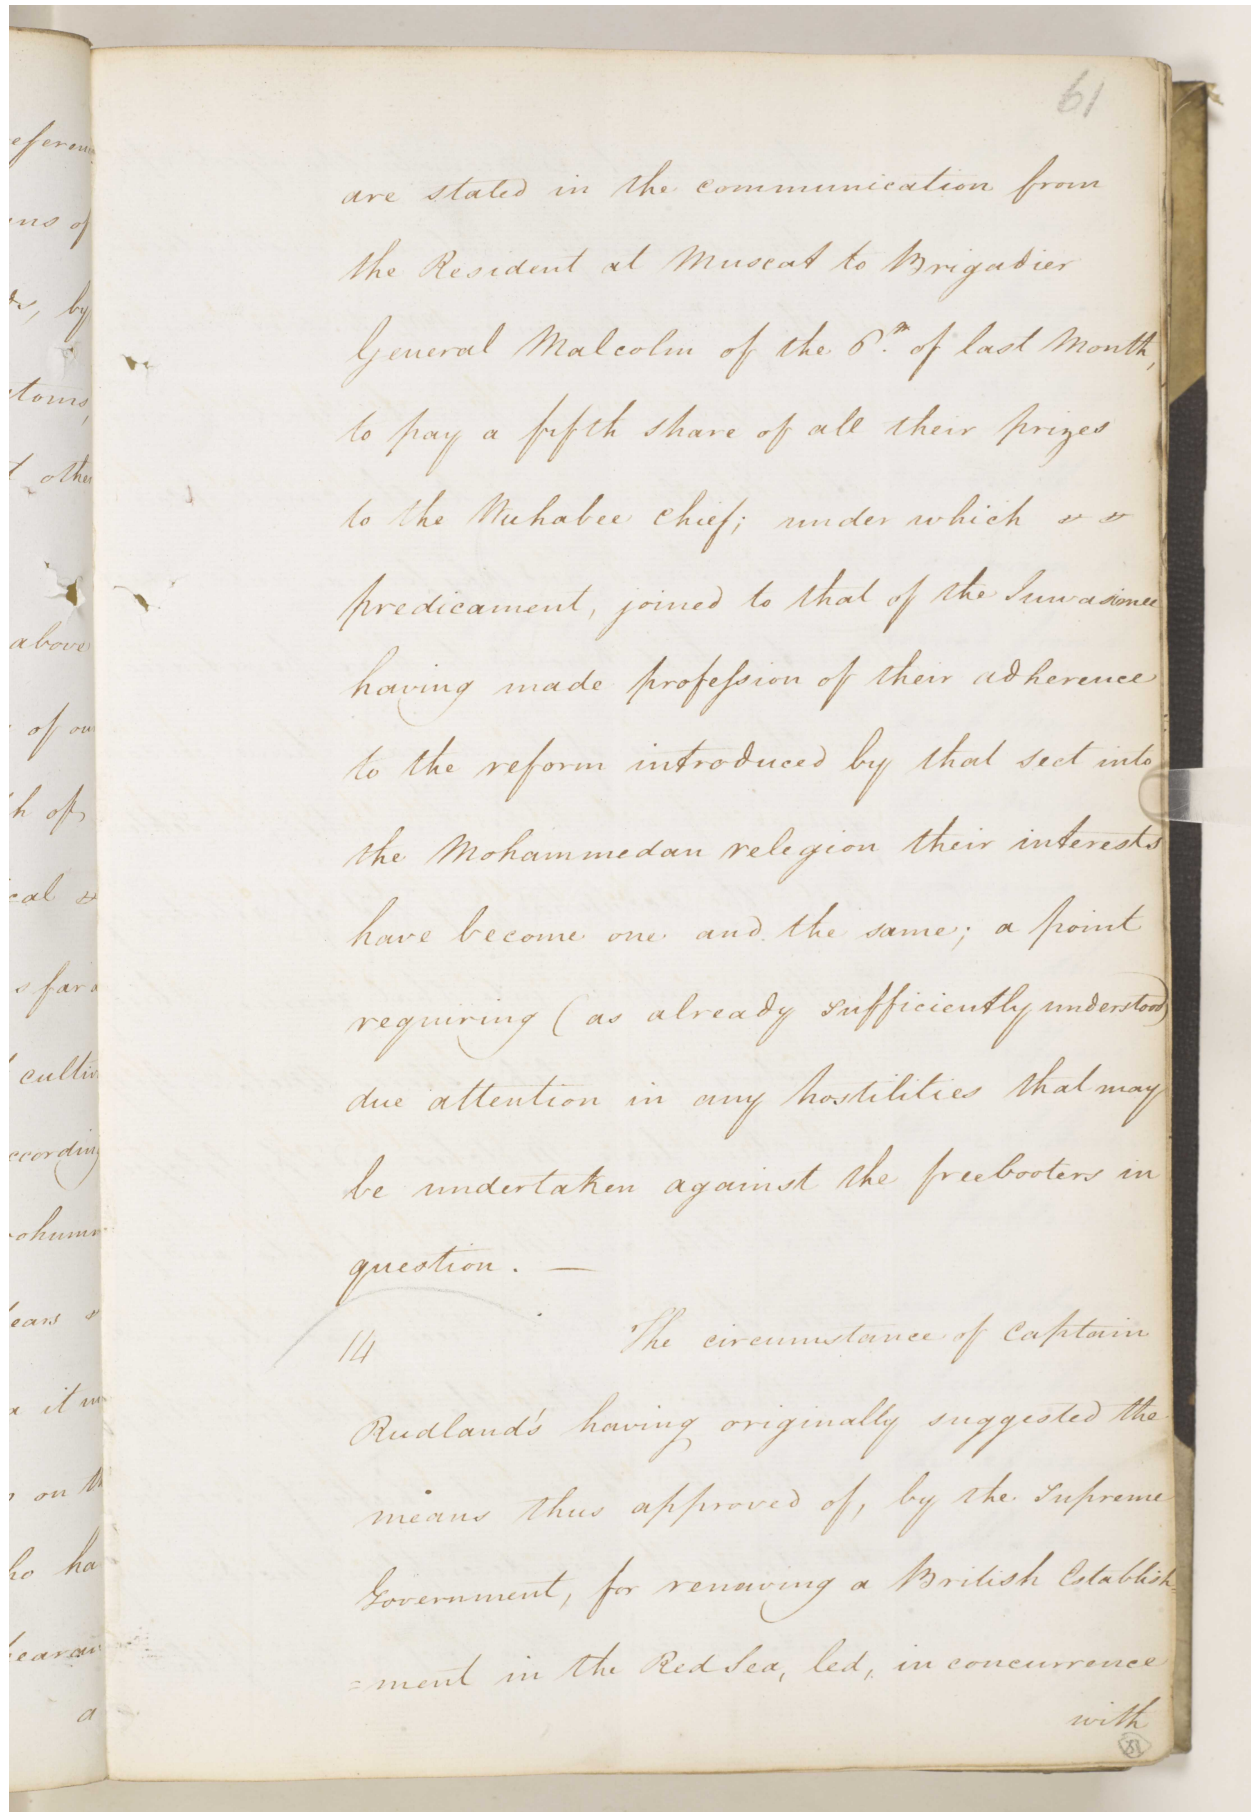 61
are stated in the communication from
the Resident at Muscat to Brigadier
General Malcolm of the 6.th of last Month,
to pay a fifth share of all their prizes
to the Wuhabee Chief; under which
predicament, joined to that of the Juwasimee
having made profession of their adherence
to the reform introduced by that sect into
the Mohammedan relegion their interests
have become one and the same; a point
requiring (as already sufficiently understood)
due attention in any hostilities that may
be undertaken against the freebooters in
question. —
14 The circumstance of Captain
Rudland's having originally suggested the
means thus approved of, by the Supreme
Government, for renewing a British Establish=
=ment in the Red Sea, led, in concurrence
with